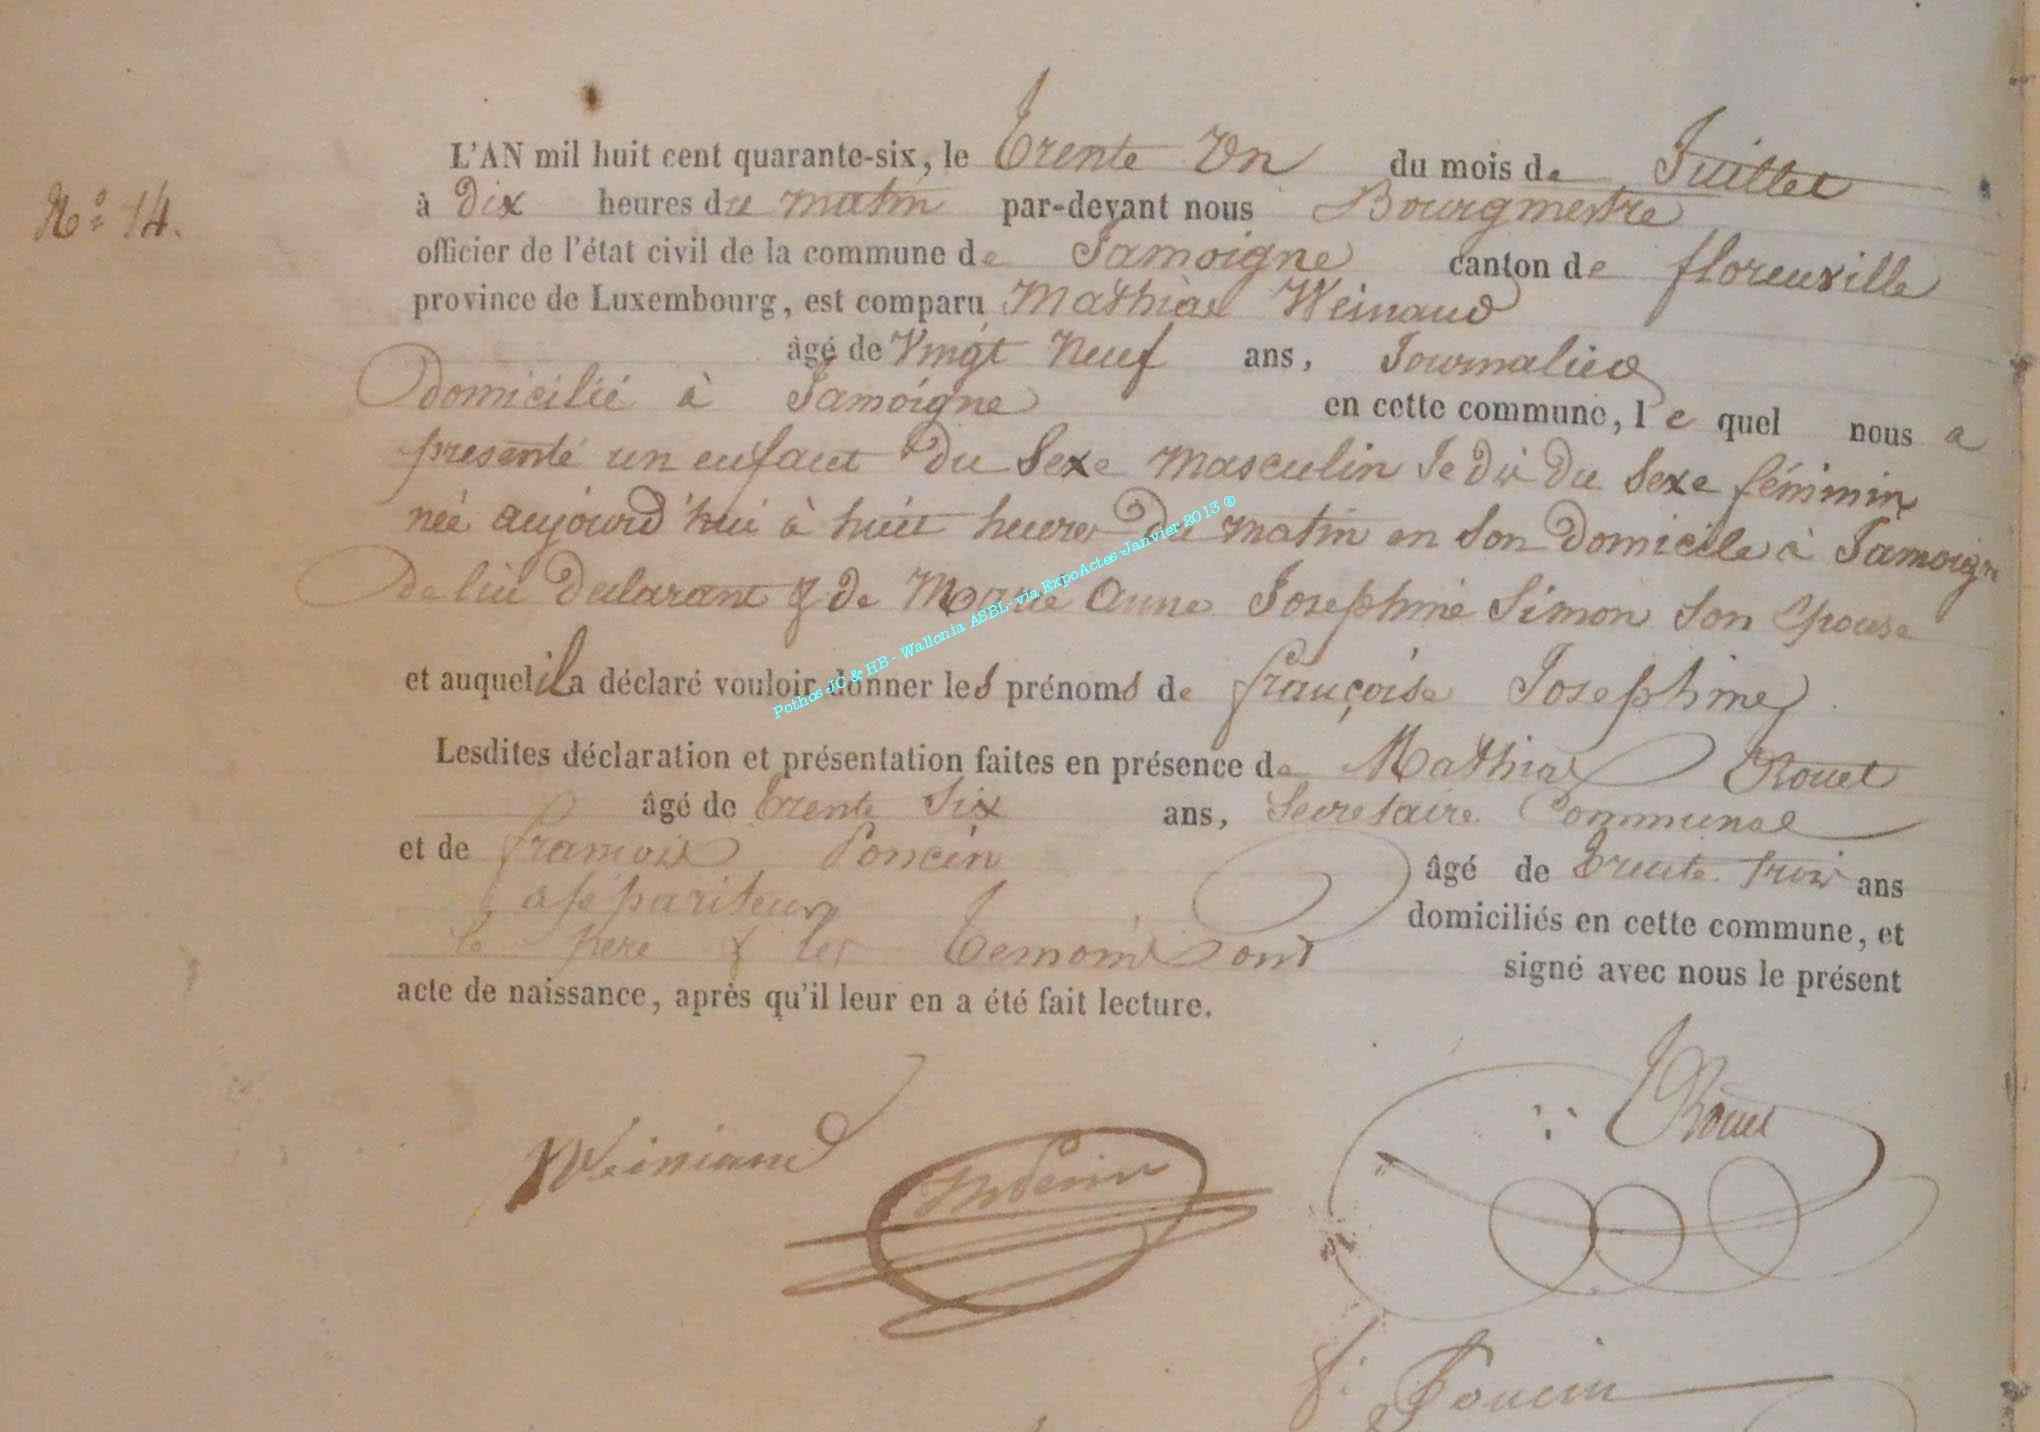 L'AN mil huit cent quarante-six, le Trente Un du mois de Juillet
N° 14.
à Dix heures du matin par-devant nous Bourgmestre
officier de l'état civil de la commune de Jamoigne canton de florenville
province de Luxembourg, est comparu Mathias Weinand
âgé de Vingt Neuf ans, Journalier
domicilié à Jamoigne en cette commune, le quel nous a
presenté un enfant du Sexe masculin Je dis du Sexe féminin
née aujourd'hui à huit heures du matin en son domicile à Jamoigne
de lui déclarant & de Marie Anne Josephine Simon son épouse
et auquel il a déclaré vouloir donner les prénoms de françoise Josephine
Lesdites déclaration et présentation faites en présence de Mathias Rouet
âgé de Trente Six ans, Secretaire Communal
et de francois Poncin âgé de Trente trois ans
appariteur domiciliés en cette commune, et
le pere & les Temoins ont signé avec nous le présent
acte de naissance, après qu'il leur en a été fait lecture.
Pothos JC & HB - Wallonia ASBL- via ExpoActes -Janvier 2013 ®
Rouet
Weiniand
f: Poncin